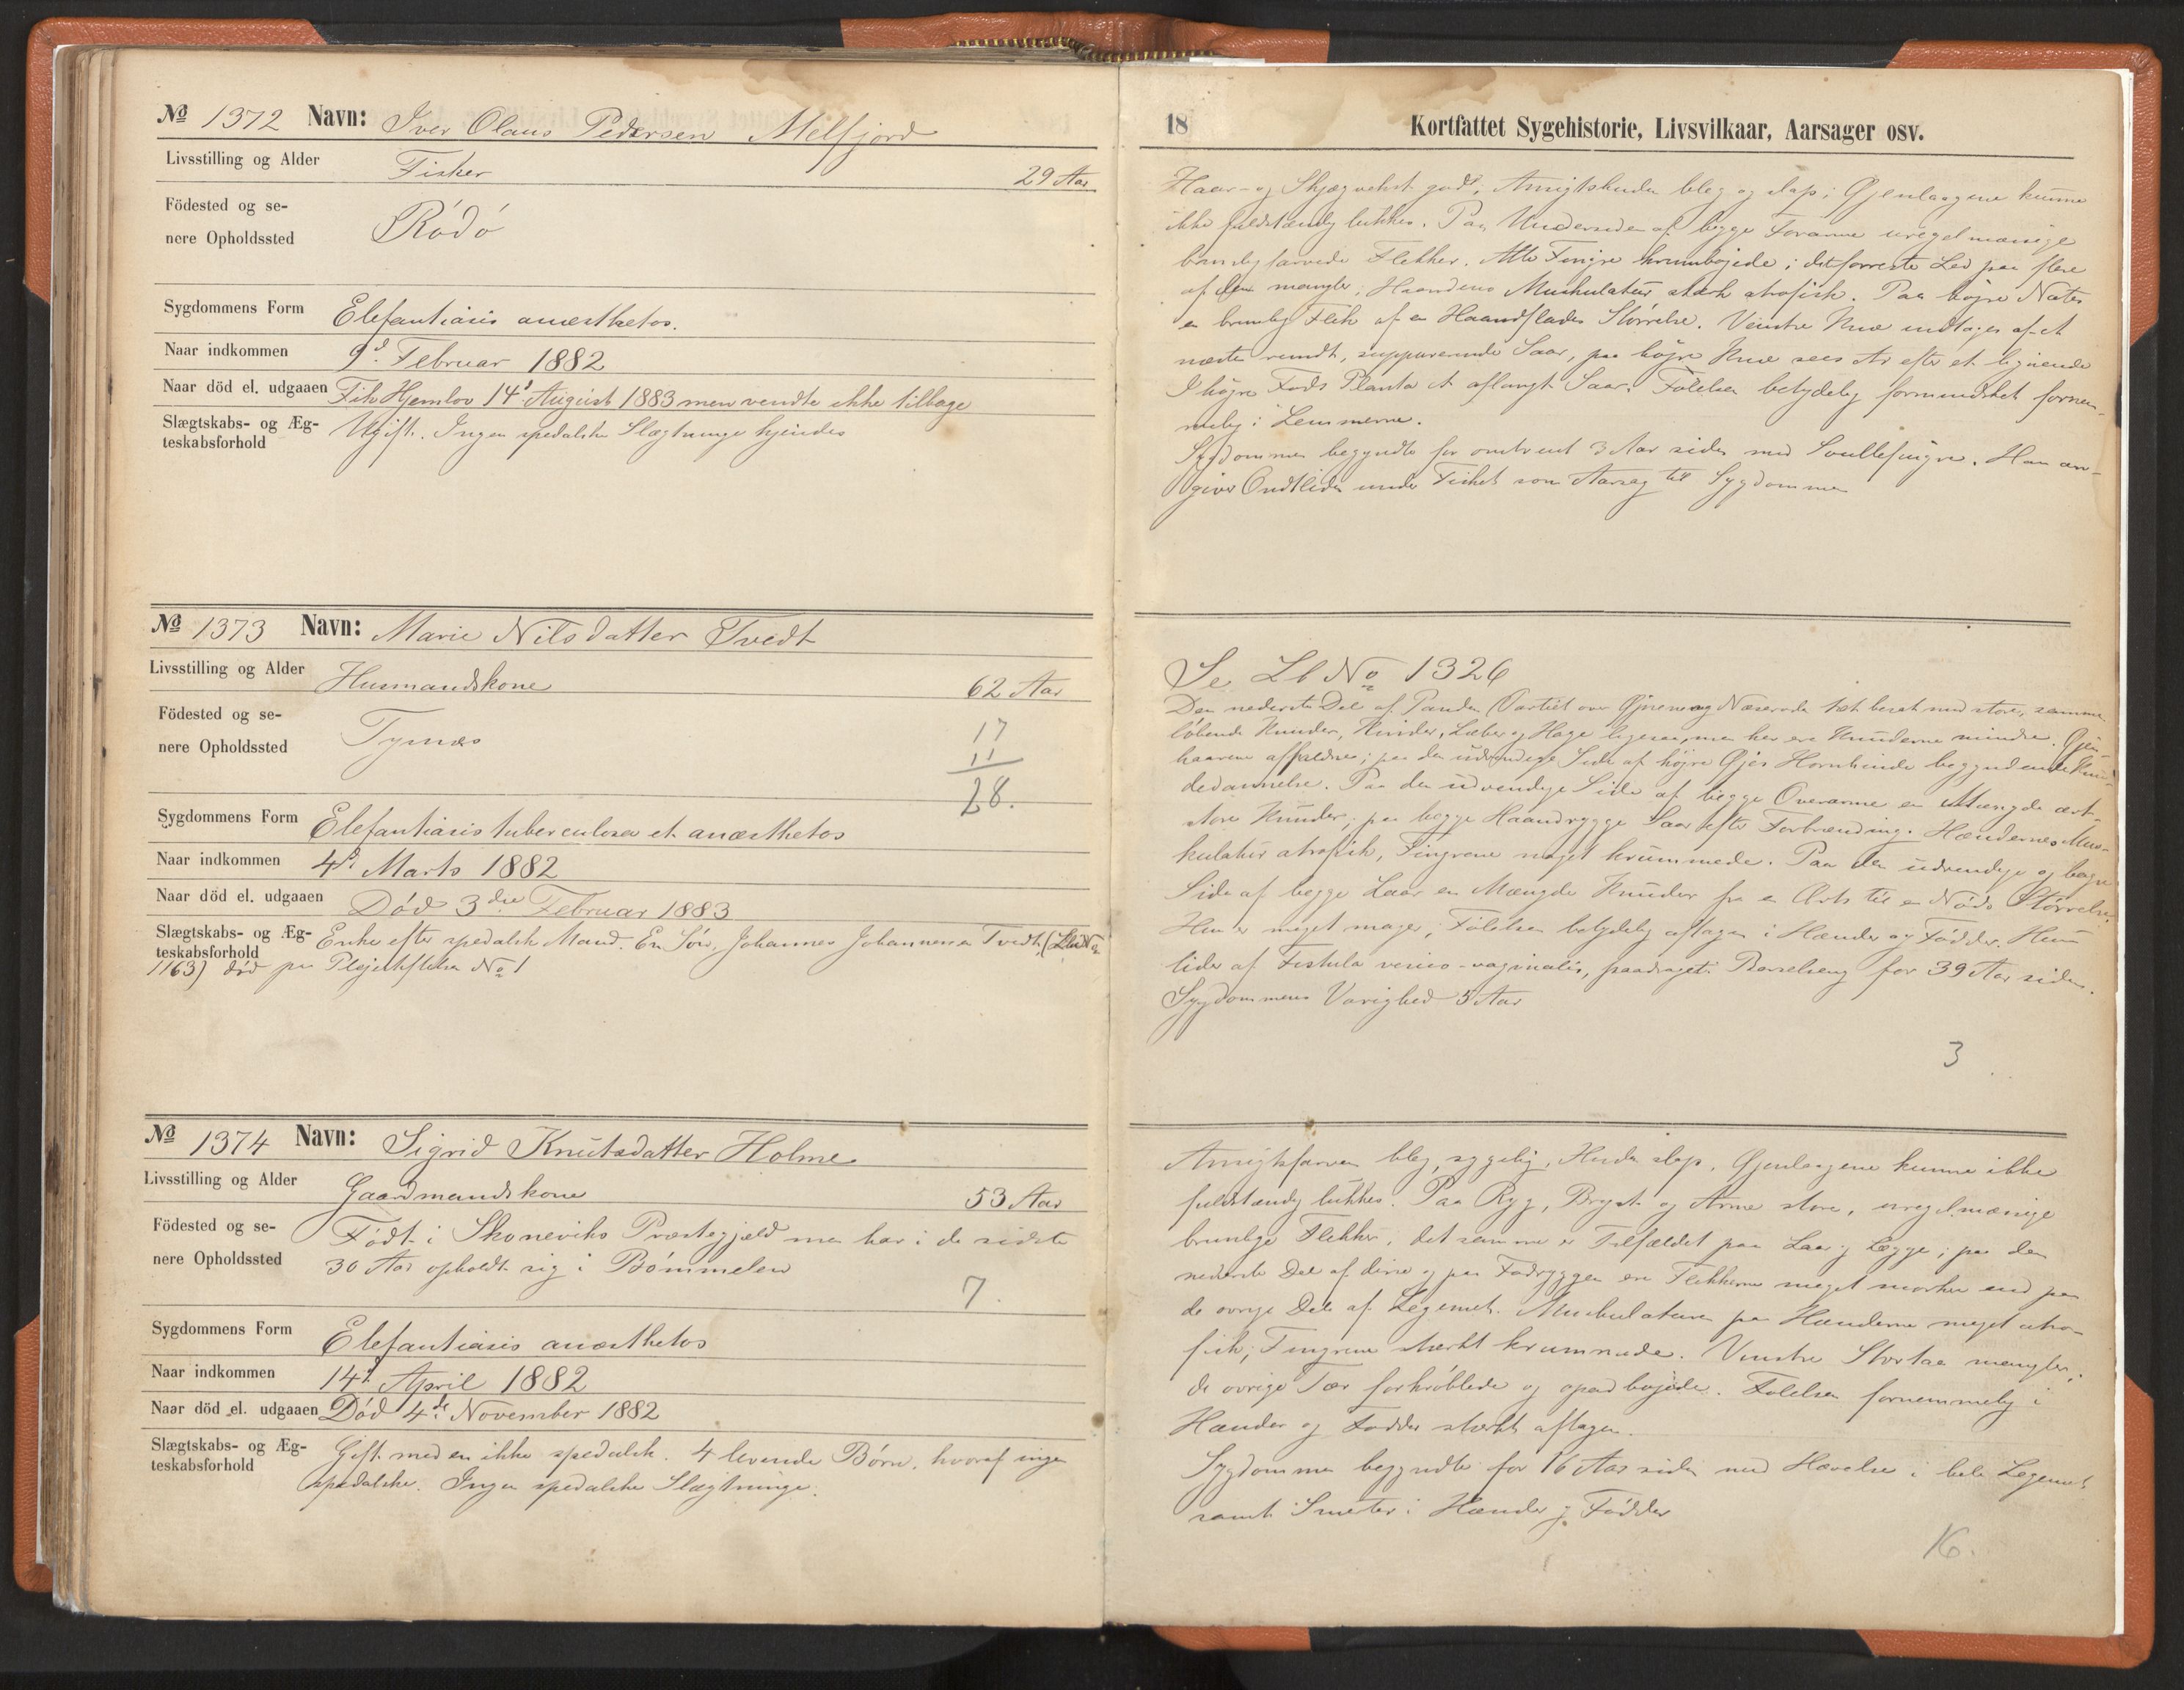 No 1372 Navn: Iver Olaus Pedersen Melfjord
Livsstilling og Alder Fisker 29 Aar
Födested og se-
nere Opholdssted Rödö
Sygdommens Form Elefantiasis anæsthetos.
Naar indkommen 9d. Februar 1882
Naar död el. udgaaen Fik Hjemlov 14d August 1883 men vendte ikke tilbage
Slægtskabs- og Æg-
teskabsforhold Ugift. Ingen spedalske Slægtninge kjendes
No 1373 Navn: Marie Nilsdatter Tvedt
Livsstilling og Alder Husmandskone 62 Aar
Födested og se-
nere Opholdssted Tysnæs
17
11
28.
Sygdommens Form Elefantiasis tuberculosa et anæsthetos
Naar indkommen 4d. Marts 1882
Naar död el. udgaaen Död 3die Februar 1883
Slægtskabs- og Æg-
teskabsforhold Enke efter spedalsk Mand. En Sön, Johannes Johannesen Tvedt, (Lb No
1163) död paa Plejestiftelsen No 1
No 1374 Navn: Sigrid Knutsdatter Holme
Livsstilling og Alder Gaardmandskone 53 Aar
Födested og se-
nere Opholdssted Födt i Skoneviks Præstegjæld men har i de sidste
30 Aar opholdt sig i Bömmelen
7.
Sygdommens Form Elefantiasis anæsthetos
Naar indkommen 14d. April 1882
Naar död el. udgaaen Död 4de November 1882
Slægtskabs- og Æg-
teskabsforhold Gift med en ikke spedalsk. 4 levende Börn, hvoraf ingen
spedalske. Ingen spedalske Slægtninge.
18
Kortfattet Sygehistorie, Livsvilkaar, Aarsager osv.
Haar- og Skjægvekst god; Ansigtshuden bleg og slap; Øjenlaagene kunne
ikke fuldstændig lukkes. Paa Undersiden af begge Forarme uregelmæssige
brunlig farvede Flekker. Alle Fingre krumböjede; det forreste Led paa flere
af dem mangler; Haandens Muskulatur stærk atrofisk. Paa höjre Nates
en brunlig Flek af en Haandflades Störrelse. Venstre Knæ indtages af et
næsten rundt, suppurerende Saar, paa höjre Knæ sees Ar efter et lignende
I höjre Fods Planta et aflangt Saar. Fölelsen betydelig formindsket fornem-
melig i Lemmerne.
Sygdommen begyndte for omtrent 3 Aar siden med Svullefingre. Han an-
giver Ondtliden under Fisket som Aarsag til Sygdommen
Se Lb No 1326
Den nederste Del af Panden (Partiet over Øjnene og Næseroden tæt besat med store, sammen-
löbende Knuder, Kinder, Læber og Hage ligesaa, men her ere Knuderne mindre. Øjen-
haarene affaldne; paa den udvendige Side af höjre Øjes Hornhinde begyndende Knu-
dedannelse. Paa den udvendige Side af begge Overarme en Mængde ært-
store Knuder; paa begge Haandrygge Saar efter Forbrænding. Hændernes Mus-
kulatur atrofisk, Fingrene noget krummede. Paa den udvendige og bagre
Side af begge Laar en Mængde Knuder fra en Ærts til en Nöds Störrelse.
Hun er meget mager; Fölelsen betydelig aftagen i Hænder og Födder. Hun
lider af Fistula vesico-vaginalis, paadraget i Barselseng for 39 Aar siden.
Sygdommens Varighed 5 Aar
3
Ansigtsfarven bleg, sygelig, Huden slap, Øjenlaagene kunne ikke
fuldstændig lukkes. Paa Ryg, Bryst og Arme store, uregelmæssige
brunlige Flekker, det samme er Tilfældet paa Laar og Lægge; paa den
nederste Del af disse og paa Fodryggen ere Flekkerne meget mörkere end paa
de övrige Dele af Legemet. Muskulaturen paa Hænderne meget atro-
fisk; Fingrene stærkt krummede. Venstre Stortaa mangler,
de övrige Tær forkröblede og opad böjede. Fölelsen fornemmelig i
Hænder og Födder stærkt aftagen.
Sygdommen begyndte for 16 Aar siden med Hævelse i hele Legemet
samt Smerter i Hænder og Födder
16.